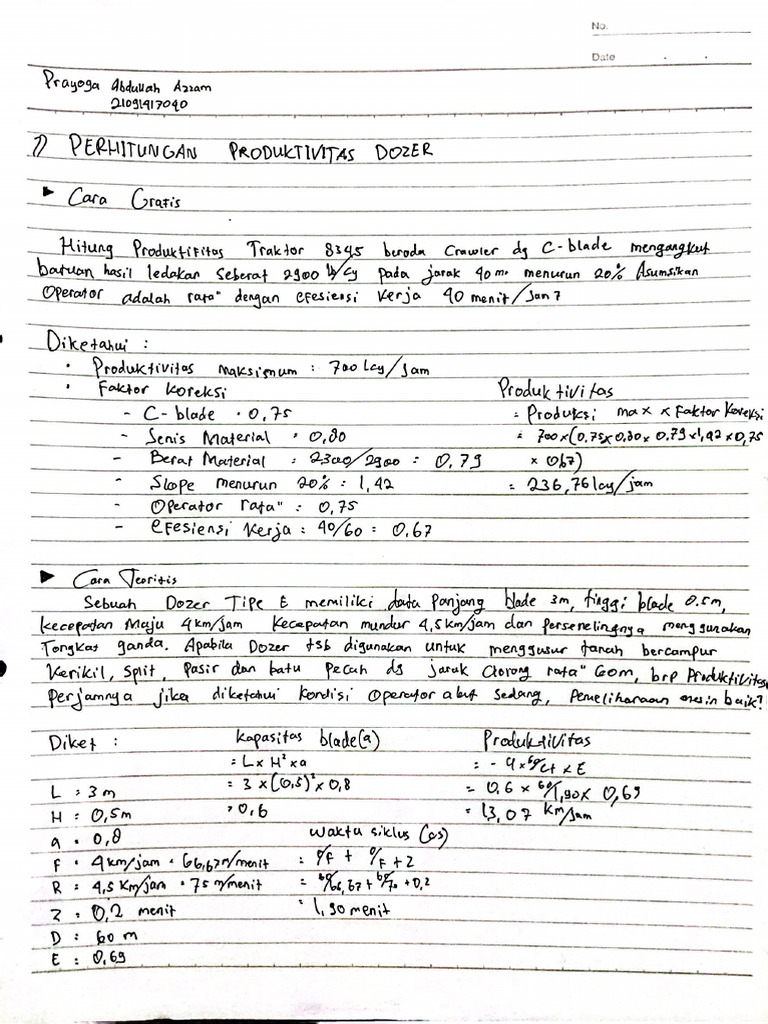 No.
Date
Prayoga Abdullah Azzam
21091417040
1) PERHITUNGAN PRODUKTIVITAS DOZER
► Cara Grafis
Hitung Produktifitas Traktor 8345 beroda Crawler dg C-blade mengangkut
batuan hasil ledakan seberat 2900 lb/cy pada jarak 40 m. menurun 20% Asumsikan
Operator adalah rata" dengan efesiensi kerja 40 menit/Jam?
Diketahui :
• Produktivitas maksimum : 700 lcy/jam
• Faktor koreksi
- C-blade : 0,75
- Jenis Material : 0,80
- Berat Material : 2300/2900 : 0,79
- Slope menurun 20% : 1,42
- Operator rata" : 0,75
- efesiensi kerja : 40/60 : 0,67
Produktivitas
= Produksi max x Faktor koreksi
= 700x(0,75x0,80x0,79x1,42x0,75
x 0,67)
= 236,76 lcy/jam
► Cara Teoritis
Sebuah Dozer Tipe E memiliki data panjang blade 3m, tinggi blade 0.5m,
kecepatan Maju 4 km/jam kecepatan mundur 4,5 km/jam dan persenelingnya menggunakan
Tongkat ganda. Apabila Dozer tsb digunakan untuk menggusur tanah bercampur
kerikil, split, pasir dan batu pecah dg jarak dorong rata" 60m, brp Produktivitas
Perjamnya jika diketahui kondisi Operator alat sedang, Pemeliharaan mesin baik?
Diket :
L : 3 m
H : 0,5 m
a : 0,8
F : 4 km/jam = 66,67 m/menit
R : 4,5 km/jam = 75 m/menit
Z : 0,2 menit
D : 60 m
E : 0,69
kapasitas blade(a)
= L x H² x a
= 3 x (0,5)² x 0,8
= 0,6
waktu siklus (cs)
= D/F + D/F + Z
= 60/66,67 + 60/70 + 0,2
= 1,90 menit
Produktivitas
= - 9 x 60/ct x E
= 0,6 x 60/1,90 x 0,69
= 13,07 km/jam